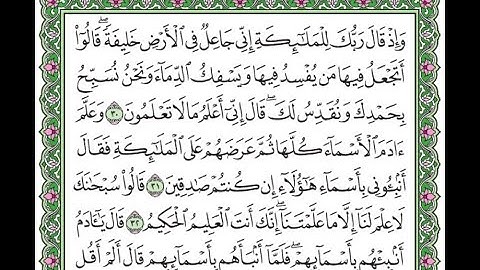 وَإِذْ قَالَ رَبُّكَ لِلْمَلَٰٓئِكَةِ إِنِّى جَاعِلٌ فِى ٱلْأَرْضِ خَلِيفَةًۖ قَالُوٓا۟
أَتَجْعَلُ فِيهَا مَن يُفْسِدُ فِيهَا وَيَسْفِكُ ٱلدِّمَآءَ وَنَحْنُ نُسَبِّحُ
بِحَمْدِكَ وَنُقَدِّسُ لَكَۖ قَالَ إِنِّىٓ أَعْلَمُ مَا لَا تَعْلَمُونَ ٣٠ وَعَلَّمَ
ءَادَمَ ٱلْأَسْمَآءَ كُلَّهَا ثُمَّ عَرَضَهُمْ عَلَى ٱلْمَلَٰٓئِكَةِ فَقَالَ
أَنۢبِـُٔونِى بِأَسْمَآءِ هَٰٓؤُلَآءِ إِن كُنتُمْ صَٰدِقِينَ ٣١ قَالُوا۟ سُبْحَٰنَكَ
لَا عِلْمَ لَنَآ إِلَّا مَا عَلَّمْتَنَآۖ إِنَّكَ أَنتَ ٱلْعَلِيمُ ٱلْحَكِيمُ ٣٢ قَالَ يَٰٓـَٔادَمُ
أَنۢبِئْهُم بِأَسْمَآئِهِمْۖ فَلَمَّآ أَنۢبَأَهُم بِأَسْمَآئِهِمْ قَالَ أَلَمْ أَقُل